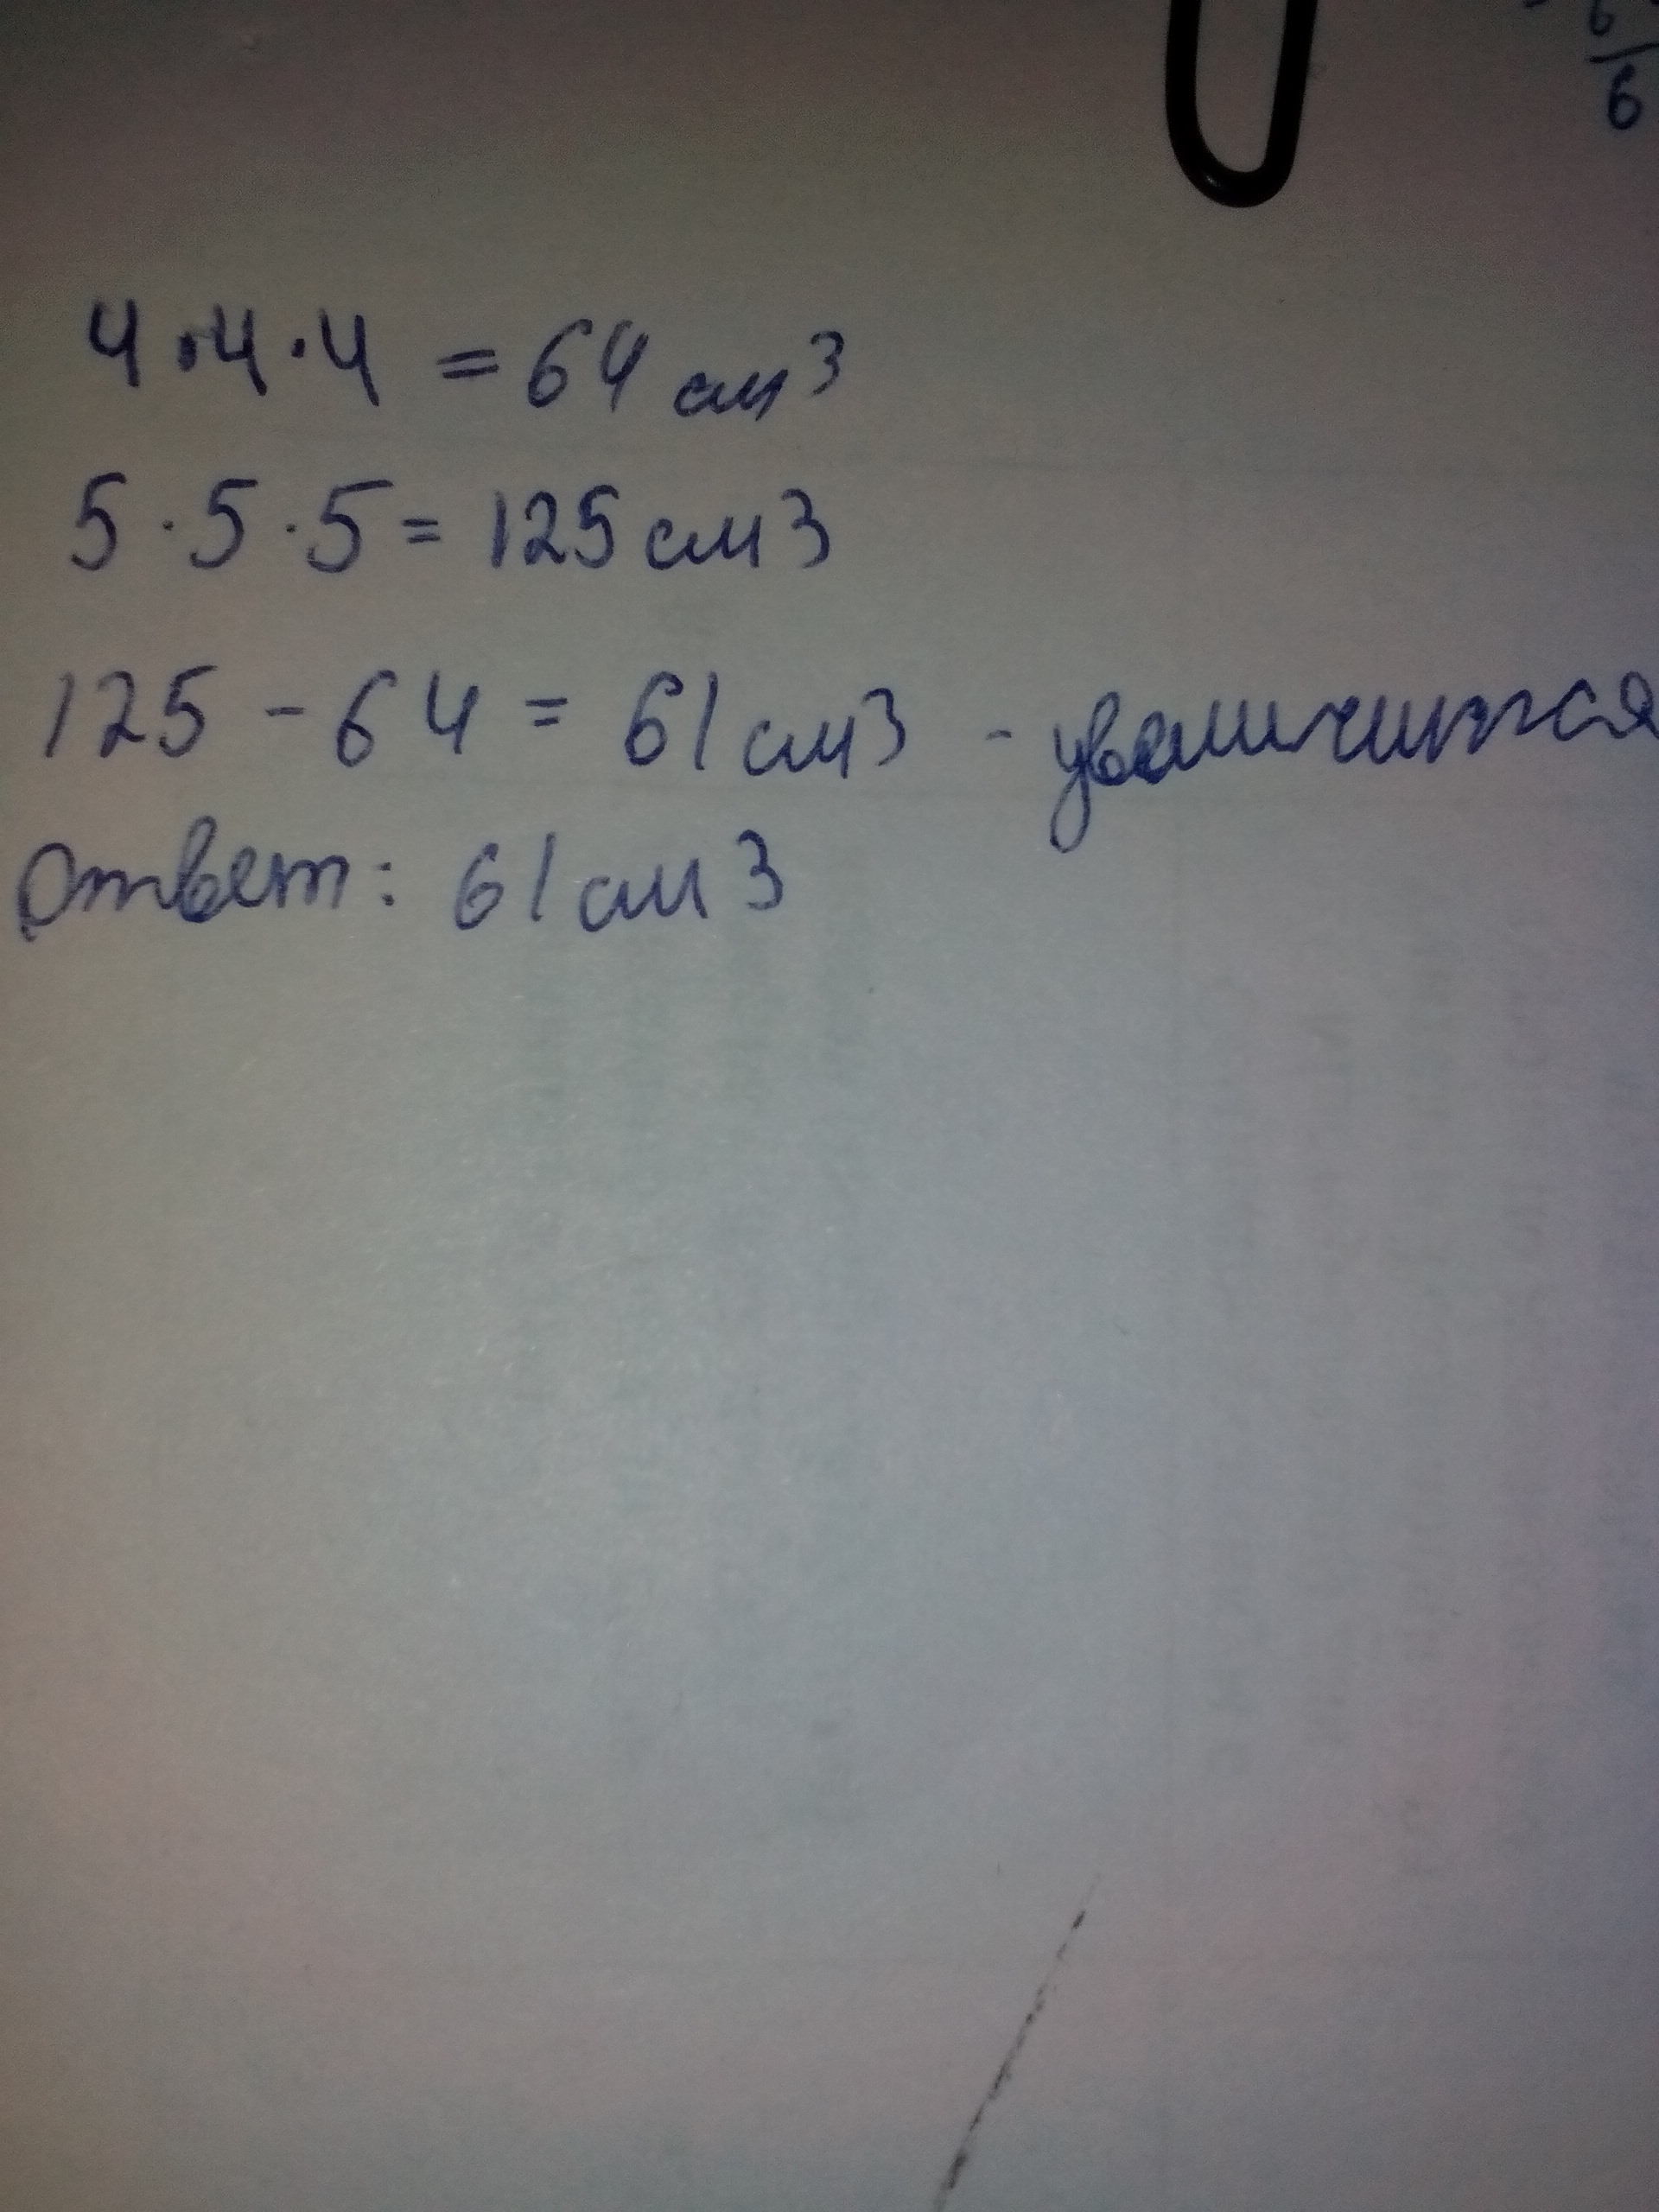 6/6
4·4·4 = 64 см³
5·5·5 = 125 см3
125 - 64 = 61 см3 - увеличится
Ответ: 61 см3